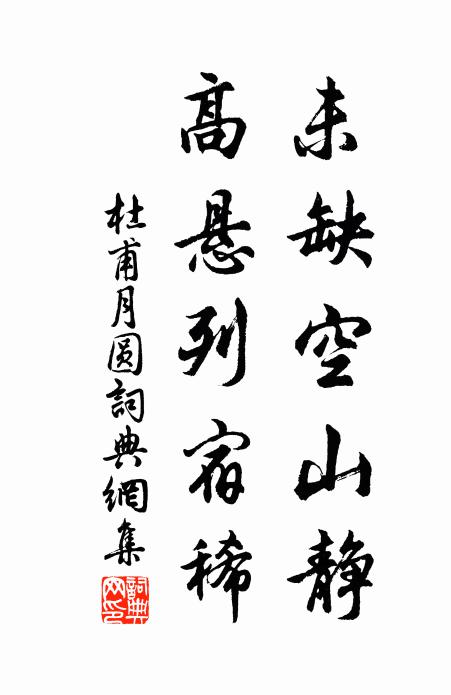 未缺空山静
高悬列宿稀
杜甫月圆詞典網集
詞典网印